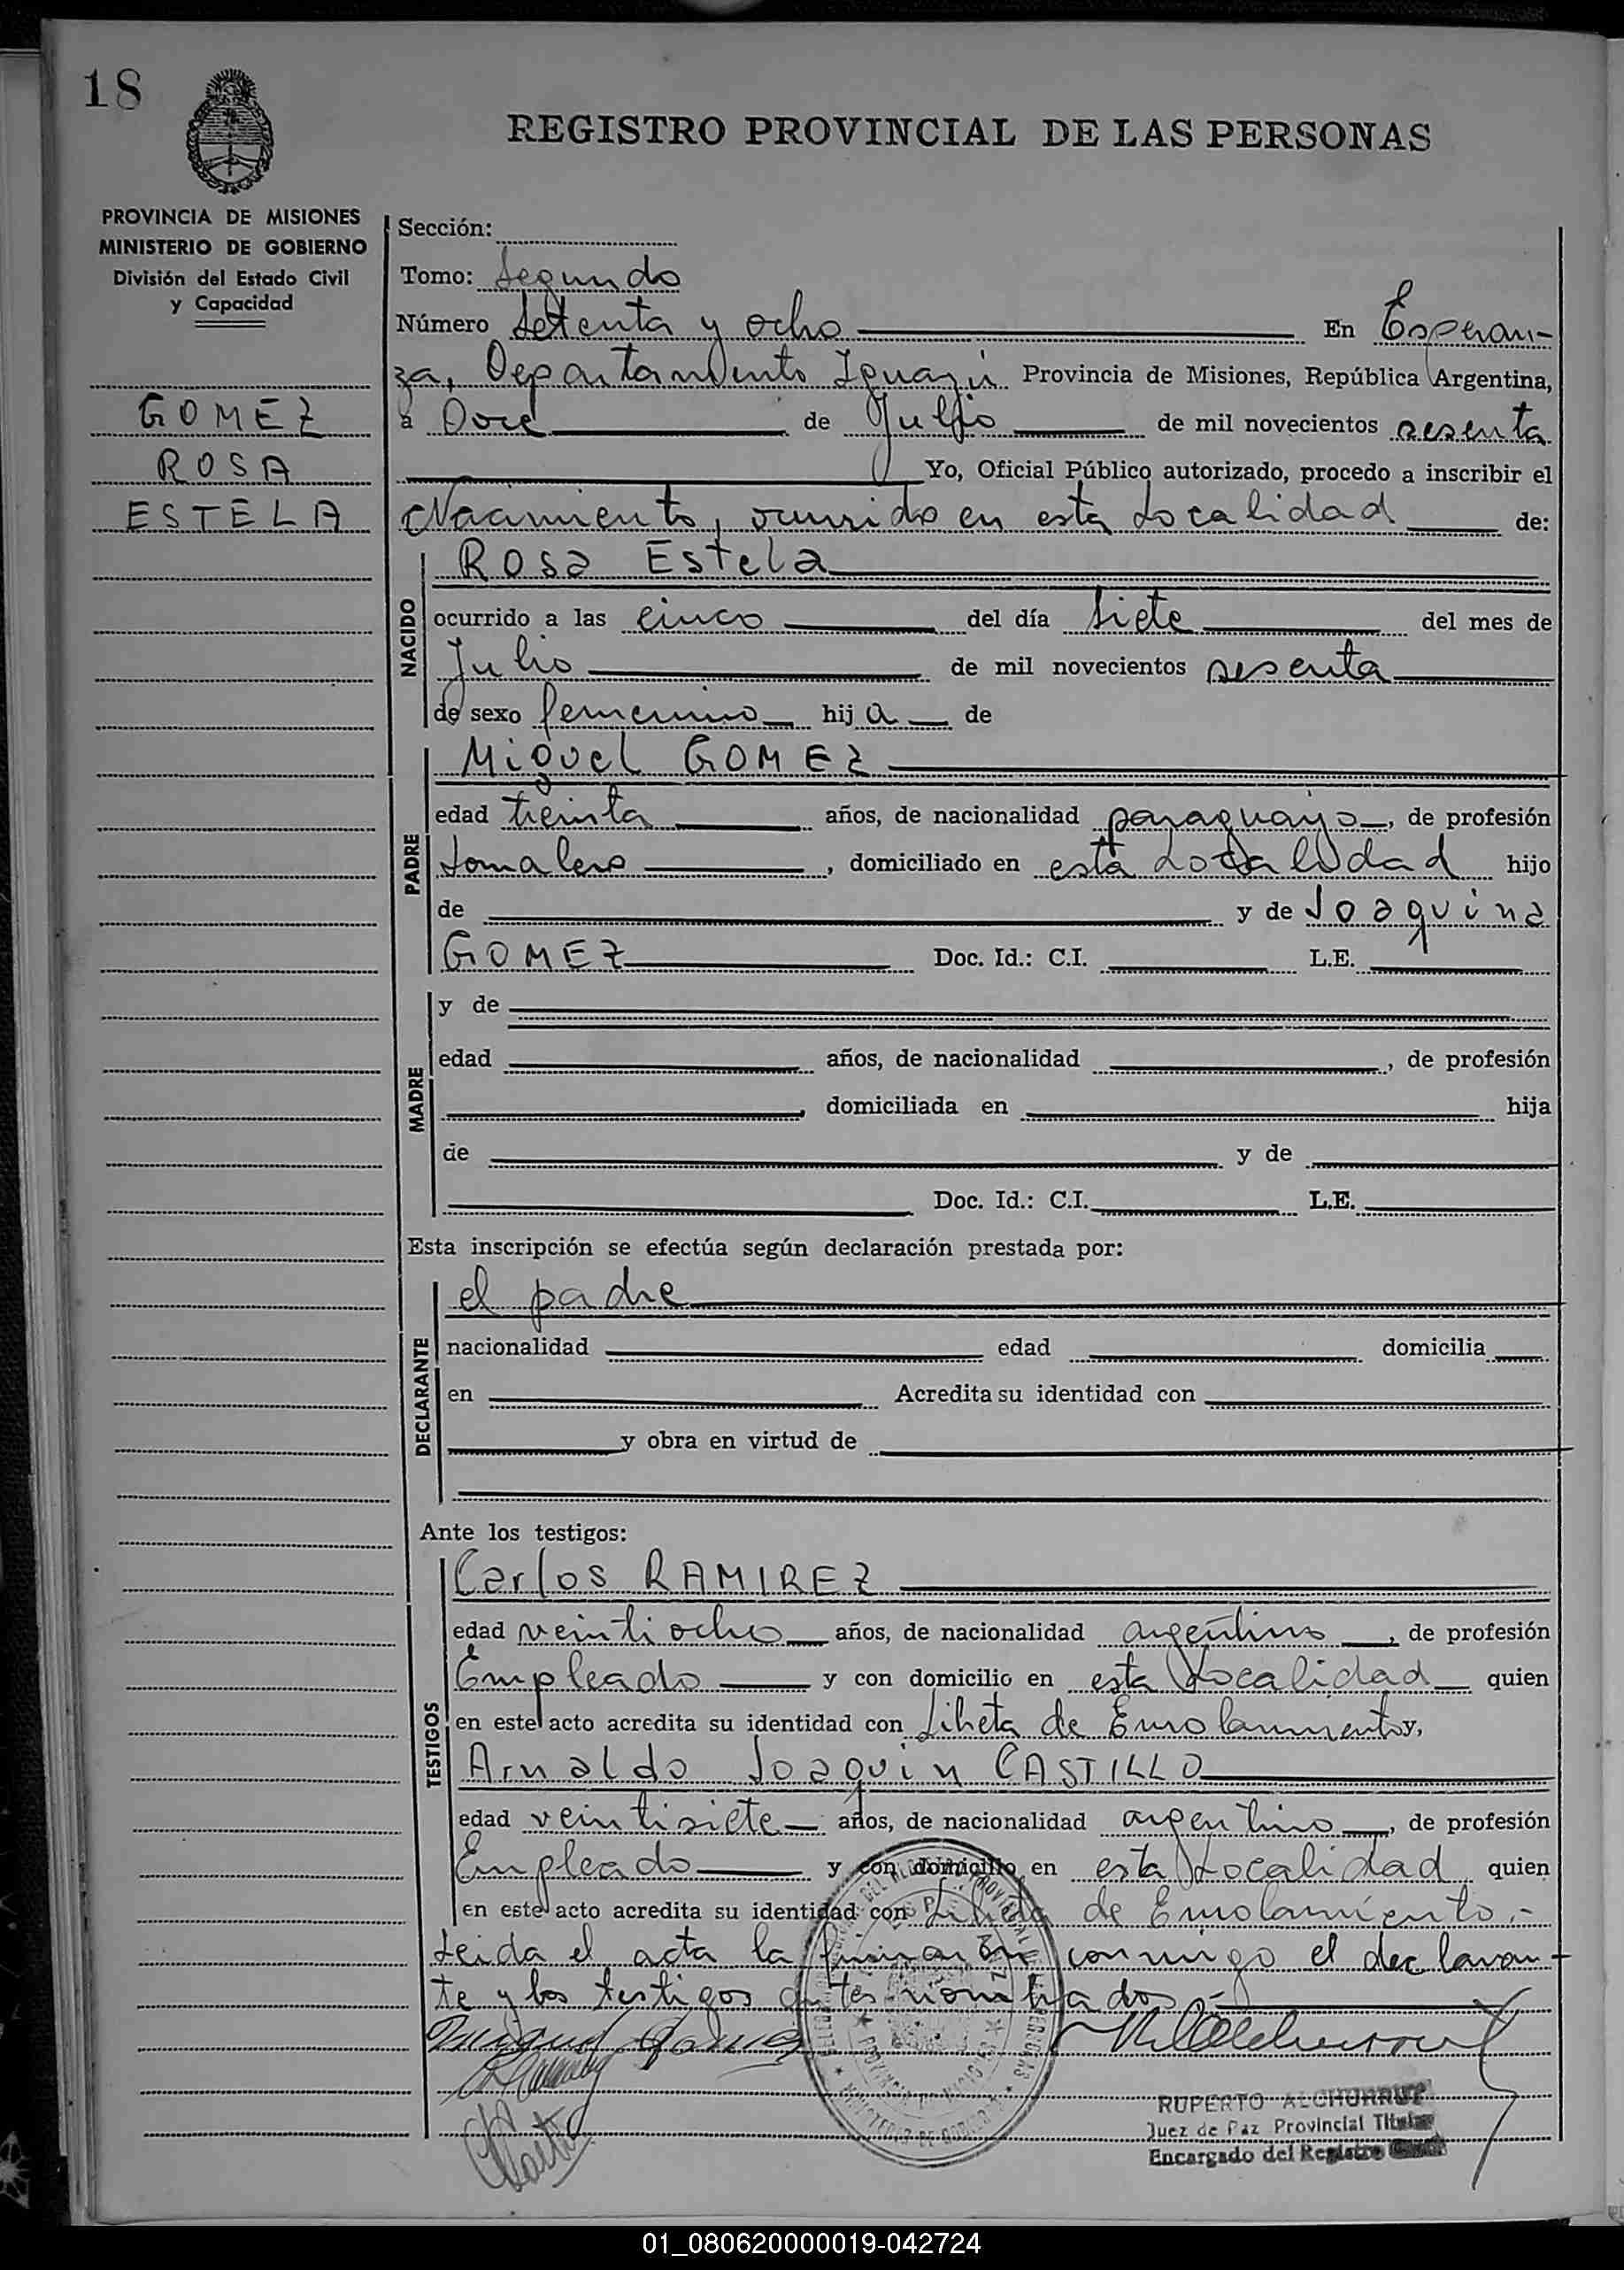 18
REGISTRO PROVINCIAL DE LAS PERSONAS
PROVINCIA DE MISIONES
MINISTERIO DE GOBIERNO
División del Estado Civil
y Capacidad
GOMEZ
ROSA
ESTELA
Sección:
Tomo: Segundo
Número Setenta y ocho En Esperan-
za, Departamento Iguazú Provincia de Misiones, República Argentina,
a Doce de Julio de mil novecientos sesenta
Yo, Oficial Público autorizado, procedo a inscribir el
Nacimiento, ocurrido en esta Localidad de:
NACIDO
Rosa Estela
ocurrido a las cinco del día siete del mes de
Julio de mil novecientos sesenta
de sexo femenino hij a de
PADRE
Miguel GOMEZ
edad treinta años, de nacionalidad paraguayo, de profesión
Jornalero, domiciliado en esta Localidad hijo
de y de Joaquina
GOMEZ Doc. Id.: C.I. L.E.
MADRE
y de
edad años, de nacionalidad , de profesión
, domiciliada en hija
de y de
Doc. Id.: C.I. L.E.
Esta inscripción se efectúa según declaración prestada por:
DECLARANTE
el padre
nacionalidad edad domicilia
en Acredita su identidad con
y obra en virtud de
Ante los testigos:
TESTIGOS
Carlos RAMIREZ
edad veintiocho años, de nacionalidad argentino, de profesión
Empleado y con domicilio en esta Localidad quien
en este acto acredita su identidad con Libreta de Enrolamiento y,
Arnaldo Joaquin CASTILLO
edad veintisiete años, de nacionalidad argentino, de profesión
Empleado y con domicilio en esta Localidad quien
en este acto acredita su identidad con Libreta de Enrolamiento.-
Leida el acta la firmaron conmigo el declaran-
te y los testigos antes nombrados.-
Miguel Gomez
RUPERTO ALCHURRUT
Juez de Paz Provincial Titular
Encargado del Registro
01_080620000019-042724